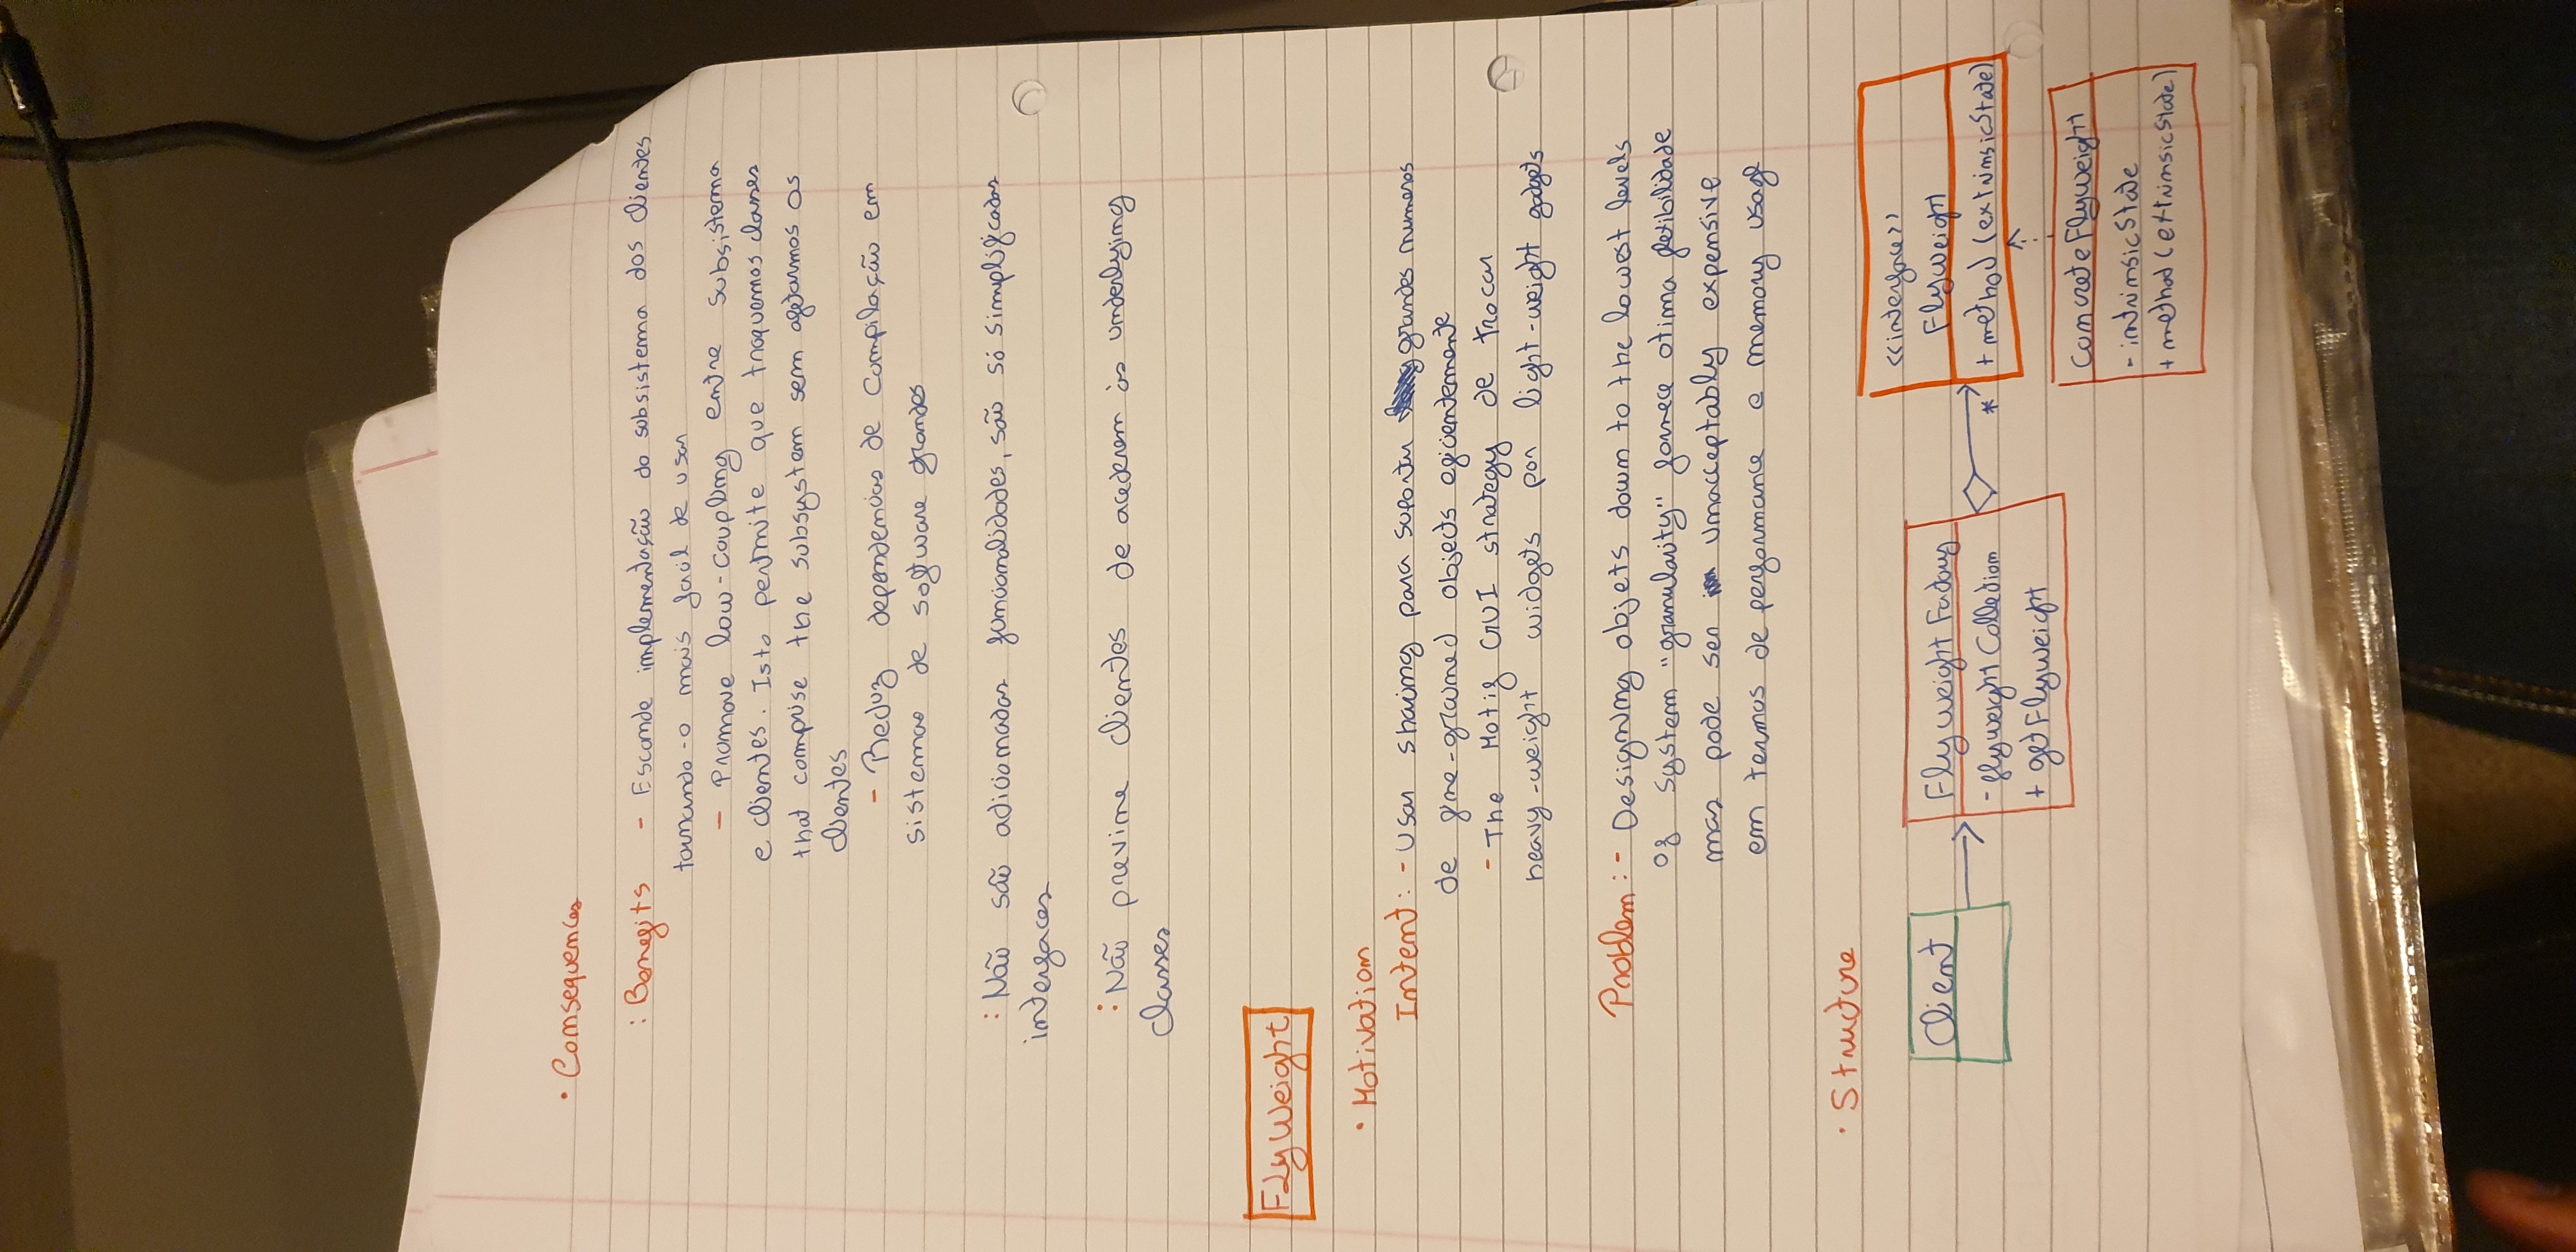 • Consequences
: Benefits - Esconde implementação do subsistema dos clientes
tornando-o mais facil de usar
- Promove low-coupling entre subsistema
e clientes. Isto permite que troquemos classes
that comprise the subsystem sem afetarmos os
clientes
- Reduz dependencias de compilação em
sistemas de software grandes
: Não são adicionadas funcionalidades, são só simplificadas
interfaces
: Não previne clientes de acederem às underlying
classes
FlyWeight
• Motivation
Intent: - Usar sharing para suportar grandes numeros
de fine-grained objects eficientemente
- The Motif GUI strategy de trocar
heavy-weight widgets por light-weight gadgets
Problem: - Designing objets down to the lowest levels
of system "granularity" fornece otima flexibilidade
mas pode ser unacceptably expensive
em termos de performance e memory usage
• Structure
<<interface>>
Client
FlyweightFactory
Flyweight
- flyweightCollection
*
+ method (extrinsicState)
+ getFlyweight
ConcreteFlyweight
- intrinsicState
+ method (extrinsicState)